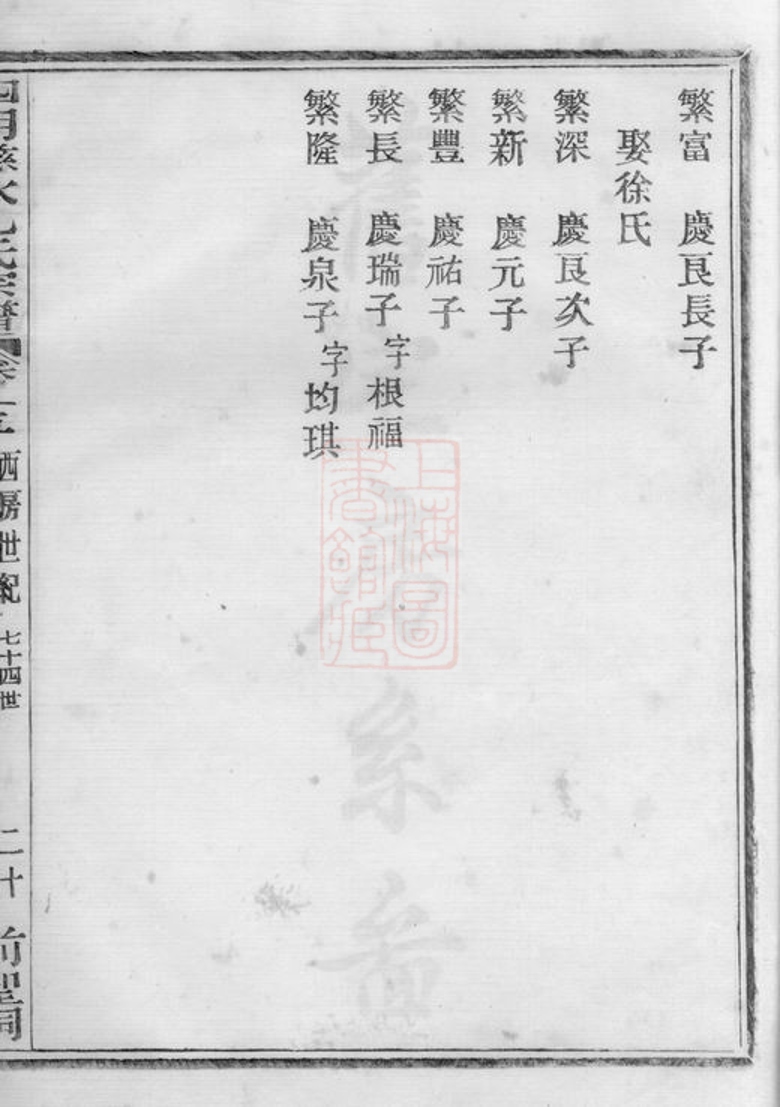 繁富 慶良長子
娶徐氏
繁深 慶良次子
繁新 慶元子
繁豐 慶祐子
繁長 慶瑞子 字根福
繁隆 慶泉子 字均琪
四明慈水孔氏宗譜 卷十五 西房世紀 七十四世 二十
上海圖書館